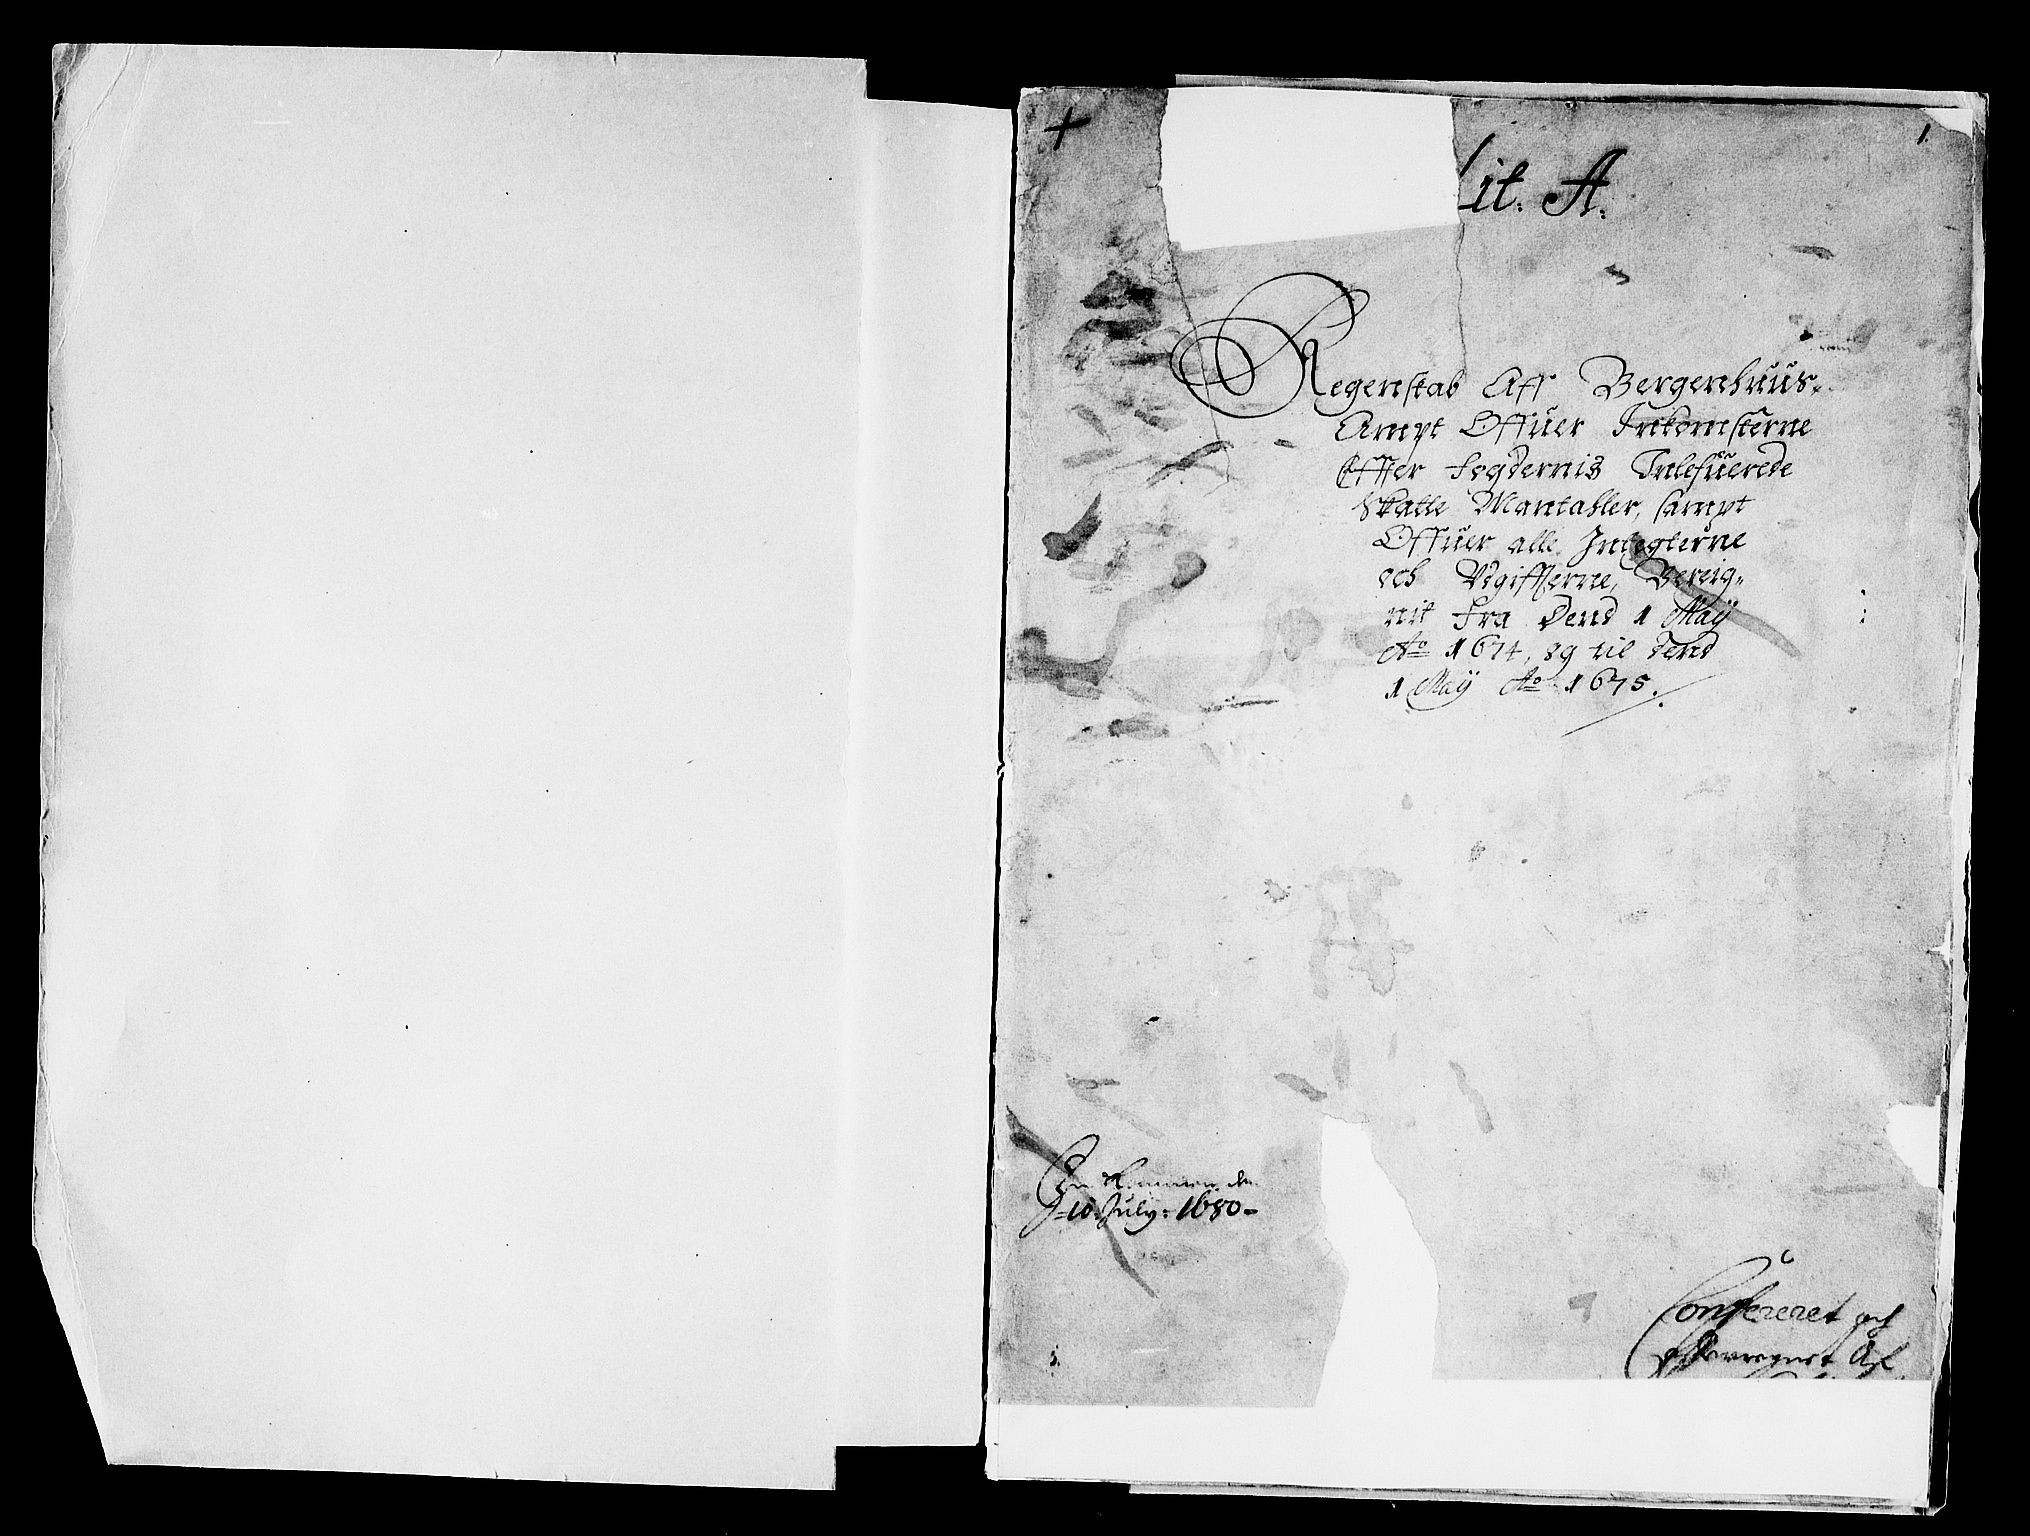 1.
Lit: A:
Regenskab Aff Bergenhuus-
Ampt Offuer Inkomsterne
Effter fogdernis Inlefuerede
Skatte Mantahler, sampt
Offuer alle Integterne
och Vdgiffterne, Bereig-
nit fra Dend 1 Maÿ
Ao 1674, og til dend
1 Maÿ Ao 1675.
Inkommen den
10. July: 1680-
Confereret och